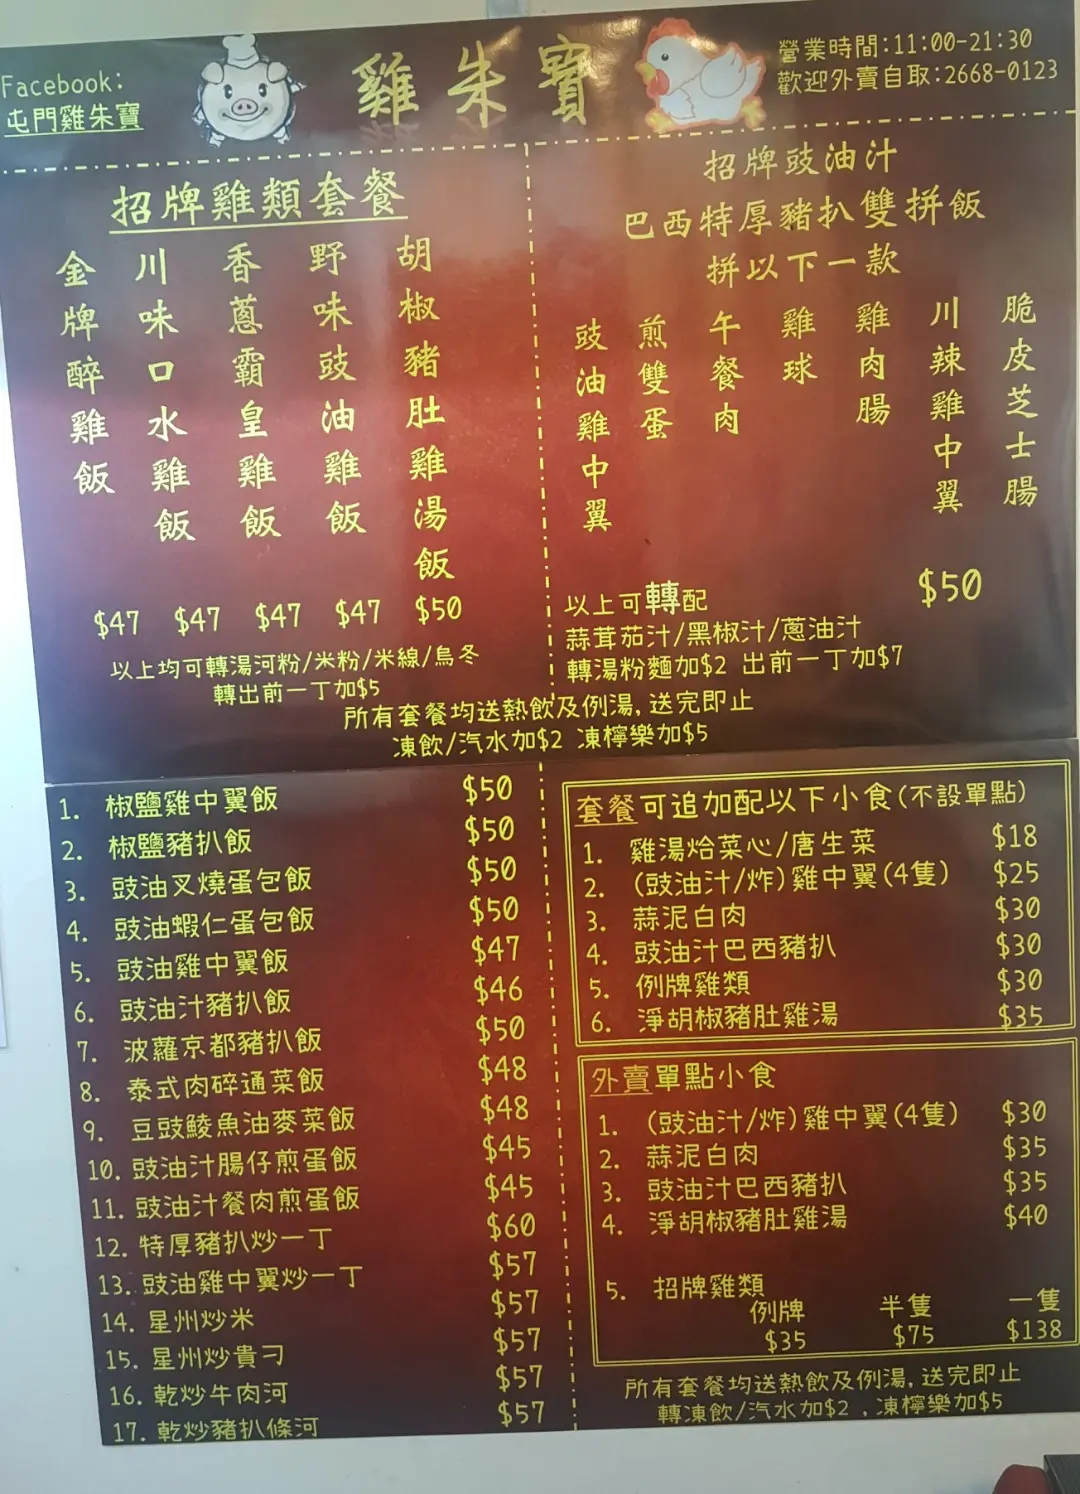 Facebook:
屯門雞朱寶
雞朱寶
營業時間:11:00-21:30
歡迎外賣自取:2668-0123
招牌雞類套餐
金牌醉雞飯 $47
川味口水雞飯 $47
香蔥霸皇雞飯 $47
野味豉油雞飯 $47
胡椒豬肚雞湯飯 $50
以上均可轉湯河粉/米粉/米線/烏冬
轉出前一丁加$5
招牌豉油汁
巴西特厚豬扒雙拼飯
拼以下一款
豉油雞中翼
煎雙蛋
午餐肉
雞球
雞肉腸
川辣雞中翼
脆皮芝士腸
$50
以上可轉配
蒜茸茄汁/黑椒汁/蔥油汁
轉湯粉麵加$2 出前一丁加$7
所有套餐均送熱飲及例湯,送完即止
凍飲/汽水加$2 凍檸樂加$5
1. 椒鹽雞中翼飯 $50
2. 椒鹽豬扒飯 $50
3. 豉油叉燒蛋包飯 $50
4. 豉油蝦仁蛋包飯 $50
5. 豉油雞中翼飯 $47
6. 豉油汁豬扒飯 $46
7. 波蘿京都豬扒飯 $50
8. 泰式肉碎通菜飯 $48
9. 豆豉鯪魚油麥菜飯 $48
10. 豉油汁腸仔煎蛋飯 $45
11. 豉油汁餐肉煎蛋飯 $45
12. 特厚豬扒炒一丁 $60
13. 豉油雞中翼炒一丁 $57
14. 星州炒米 $57
15. 星州炒貴刁 $57
16. 乾炒牛肉河 $57
17. 乾炒豬扒條河 $57
套餐可追加配以下小食(不設單點)
1. 雞湯烚菜心/唐生菜 $18
2. (豉油汁/炸)雞中翼(4隻) $25
3. 蒜泥白肉 $30
4. 豉油汁巴西豬扒 $30
5. 例牌雞類 $30
6. 淨胡椒豬肚雞湯 $35
外賣單點小食
1. (豉油汁/炸)雞中翼(4隻) $30
2. 蒜泥白肉 $35
3. 豉油汁巴西豬扒 $35
4. 淨胡椒豬肚雞湯 $40
5. 招牌雞類
例牌 半隻 一隻
$35 $75 $138
所有套餐均送熱飲及例湯,送完即止
轉凍飲/汽水加$2 ,凍檸樂加$5